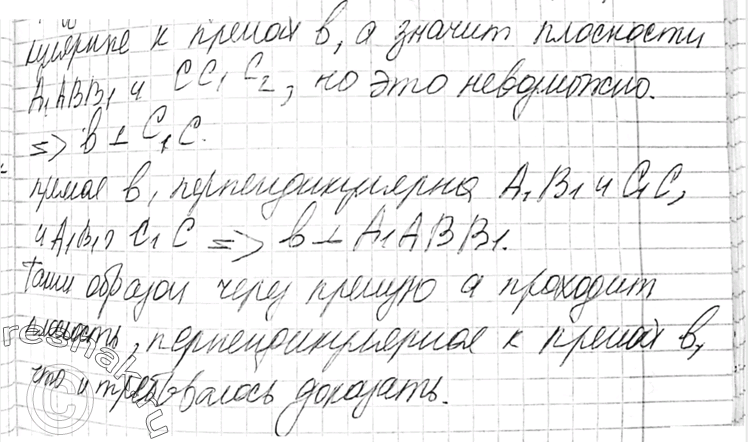 кулярные к прямой b, а значит плоскости
A₁ABB₁ и CC₁C₂, но это невозможно.
=> b ⊥ C₁C.
прямая b, перпендикулярна A₁B₁ и C₁C,
и A₁B₁ C₁C => b ⊥ A₁ABB₁.
Таким образом через прямую a проходит
перпендикулярная к прямой b,
что и требовалось доказать.
reshak.ru